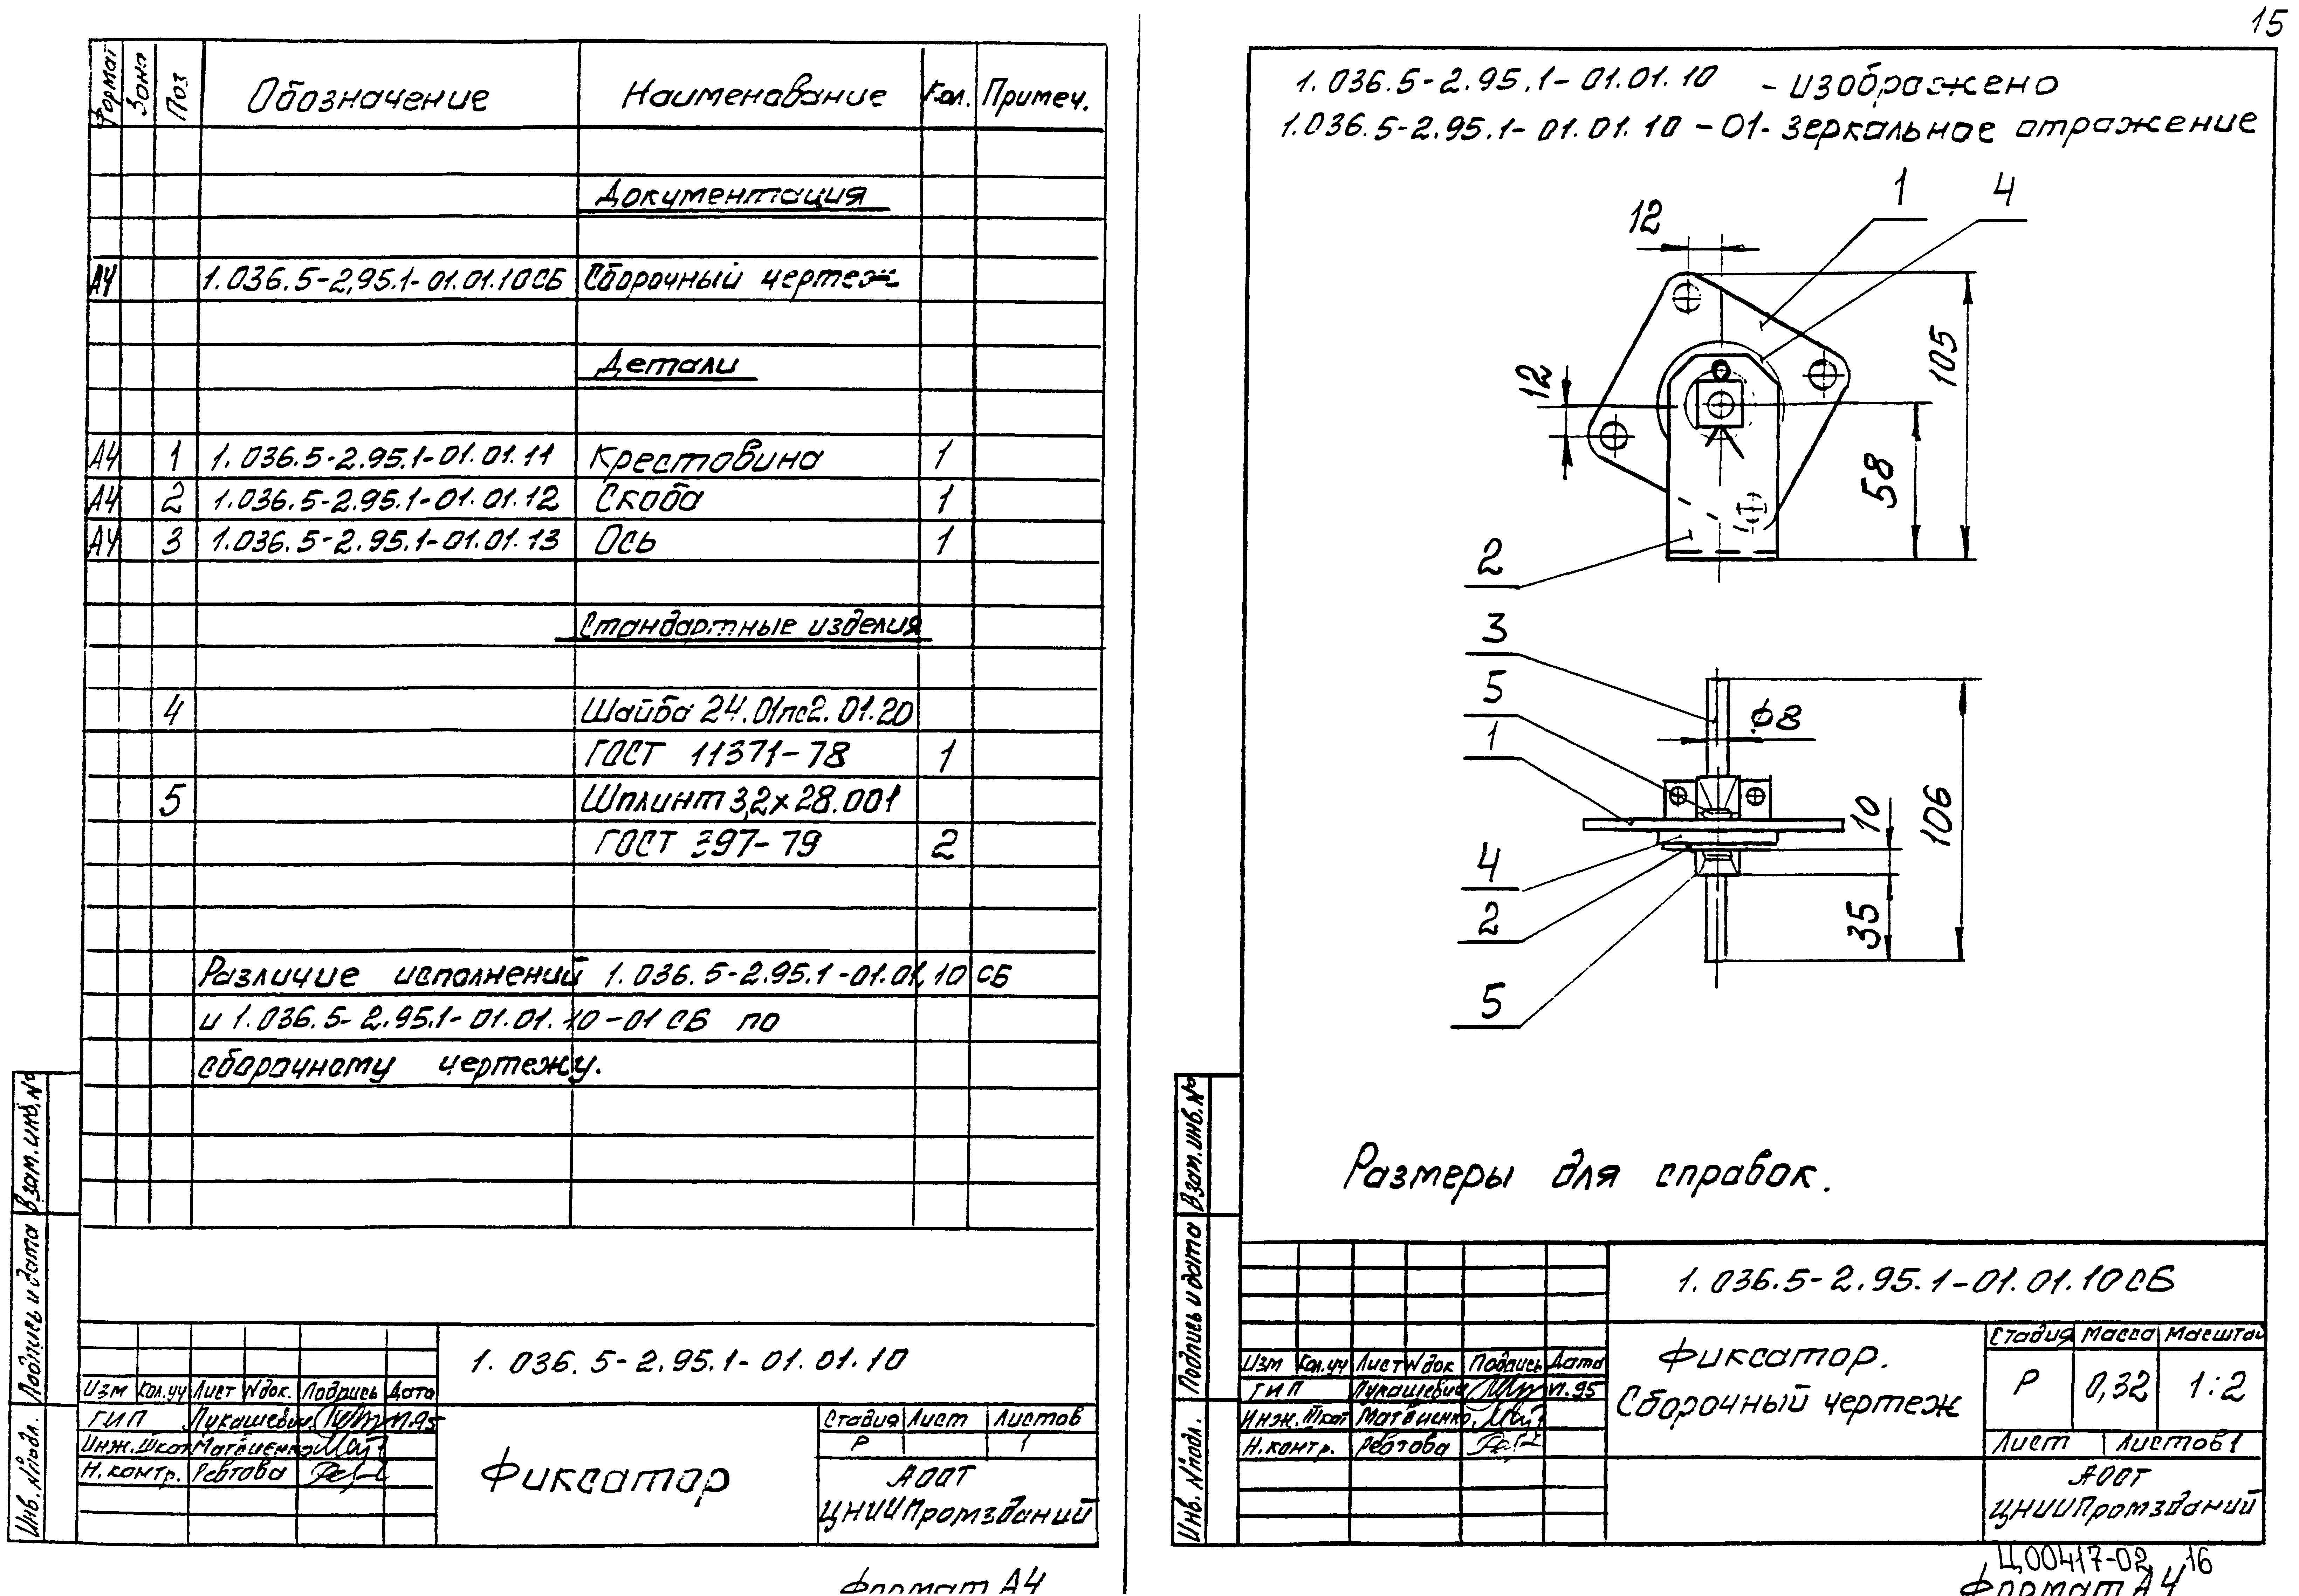 15
Формат Зона Поз Обозначение Наименование Кол. Примеч.
Документация
А4 1.036.5-2.95.1-01.01.10СБ Сборочный чертеж
Детали
А4 1 1.036.5-2.95.1-01.01.11 Крестовина 1
А4 2 1.036.5-2.95.1-01.01.12 Скоба 1
А4 3 1.036.5-2.95.1-01.01.13 Ось 1
Стандартные изделия
4 Шайба 24.01пс2.01.20
ГОСТ 11371-78 1
5 Шплинт 3,2х28.001
ГОСТ 397-79 2
Различие исполнений 1.036.5-2.95.1-01.01.10 СБ
и 1.036.5-2.95.1-01.01.10-01 СБ по
сборочному чертежу.
Взам.инв.№
Подпись и дата
Инв. № подл.
1.036.5-2.95.1-01.01.10
Изм Кол.уч Лист №док. Подпись Дата
ГИП Лукашевич 11.95
Инж.Iкат Матвиенко
Н.контр. Ревтова
Фиксатор
Стадия Лист Листов
Р 1
АООТ
ЦНИИПромзданий
Формат А4
1.036.5-2.95.1-01.01.10 - изображено
1.036.5-2.95.1-01.01.10-01- зеркальное отражение
1 4
12
12
105
58
2
3
5
1
4
2
5
ϕ8
10
106
35
Размеры для справок.
Взам.инв.№
Подпись и дата
Инв. № подл.
1.036.5-2.95.1-01.01.10СБ
Изм Кол.уч Лист №док Подпись Дата
ГИП Лукашевич 11.95
Инж.Iкат Матвиенко
Н.контр. Ревтова
Фиксатор.
Сборочный чертеж
Стадия Масса Масштаб
Р 0,32 1:2
Лист Листов 1
АООТ
ЦНИИПромзданий
Ц00417-02 16
Формат А4